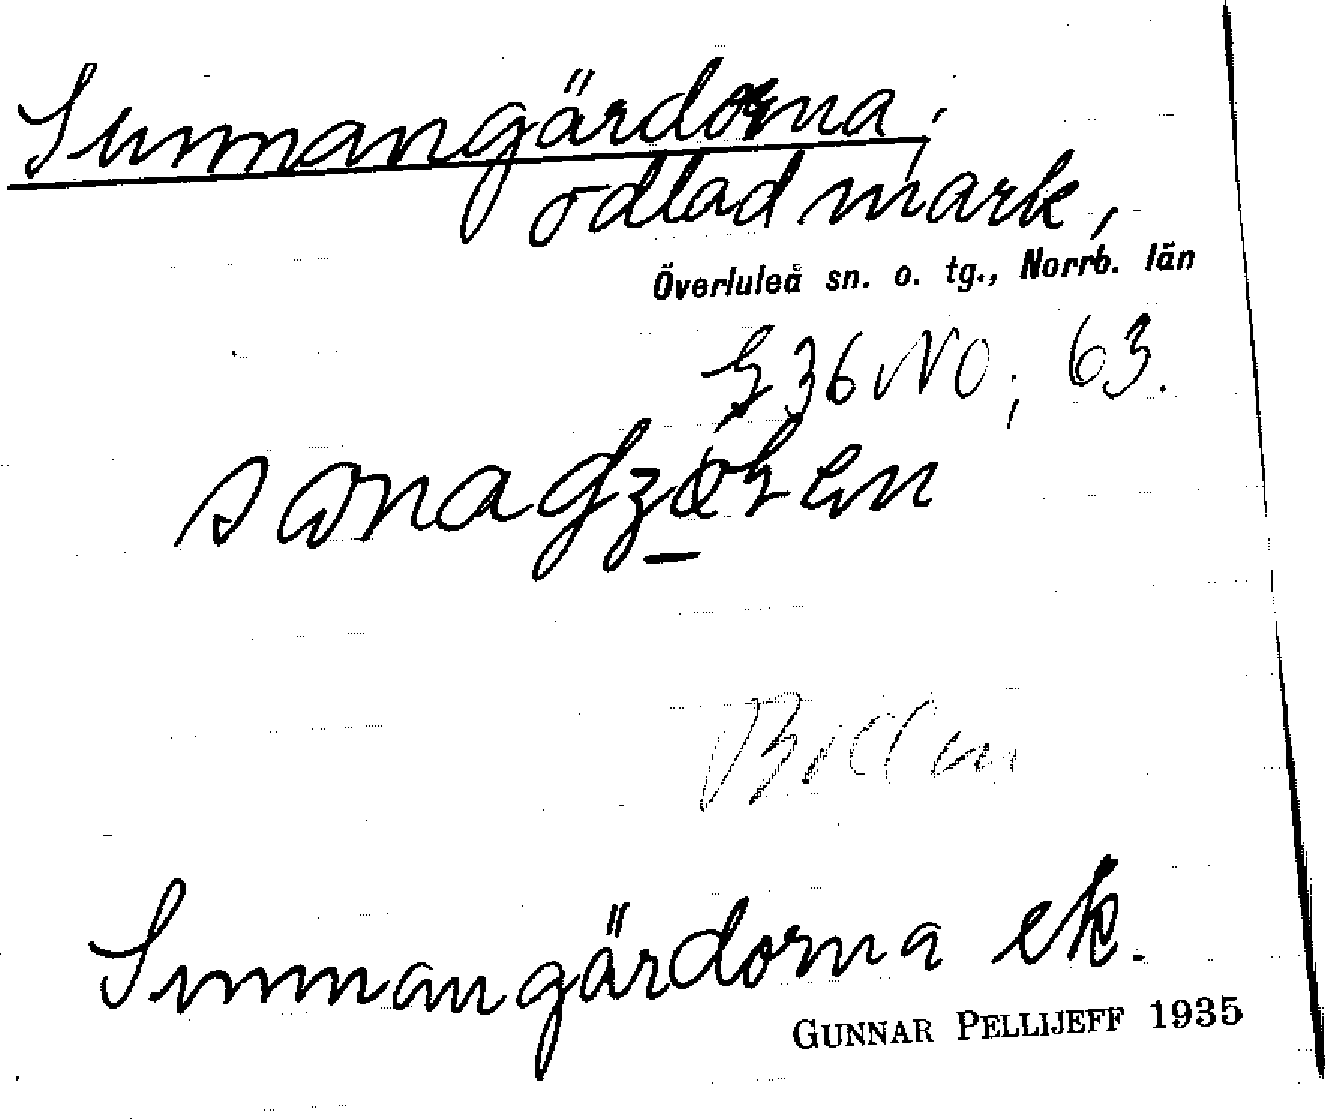 Sunnangärdorna,
odlad mark,
Överluleå sn. o. tg., Norrb. län
36 NO; 63.
Sunnangärdorna ek.
GUNNAR PELLIJEFF 1935